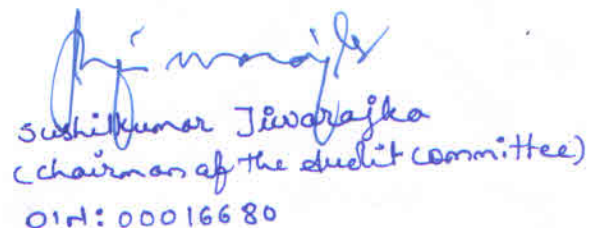 Sushilkumar Jiwarajka
(Chairman of the Audit Committee)
DIN: 00016680